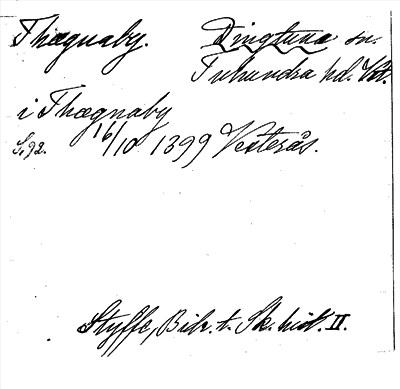 Thægnaby. Dingtuna sn.
Tuhundra hd. Vst.
i Thægnaby
S. 92. 16/10 1399 Vesterås.
Styffe, Bih. t. Sk. hist. II.